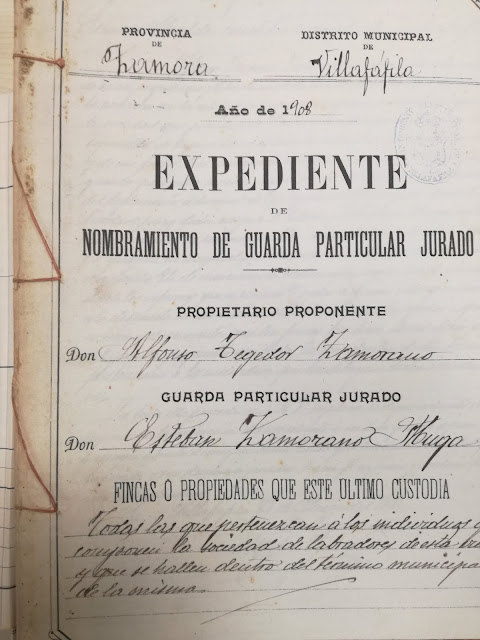 PROVINCIA
DE
Zamora
DISTRITO MUNICIPAL
DE
Villafáfila
Año de 1908
EXPEDIENTE
DE
NOMBRAMIENTO DE GUARDA PARTICULAR JURADO
PROPIETARIO PROPONENTE
Don Alfonso Tegedor Zamorano
GUARDA PARTICULAR JURADO
Don Esteban Zamorano Muga
FINCAS Ó PROPIEDADES QUE ESTE ULTIMO CUSTODIA
Todas las que pertenezcan á los individuos
componen la sociedad de labradores de esta
y que se hallen dentro del término municipa
de la misma